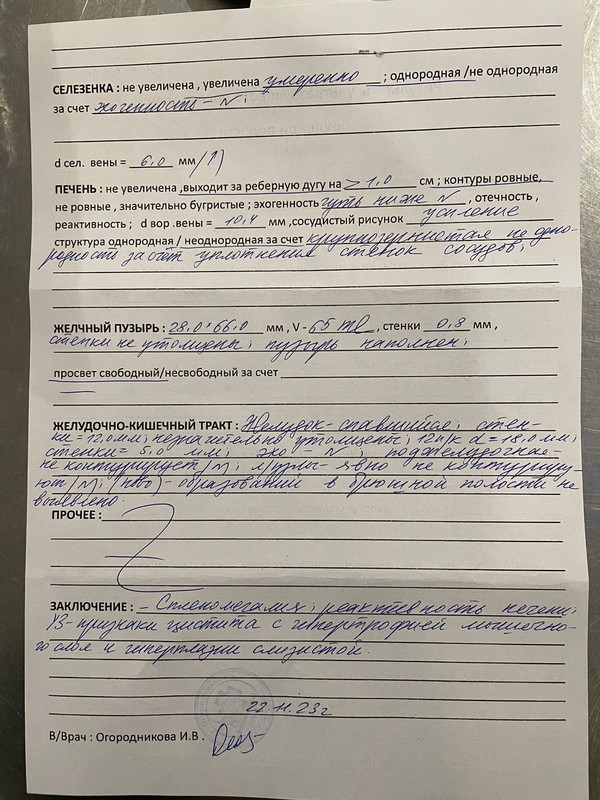 СЕЛЕЗЕНКА : не увеличена , увеличена умеренно ; однородная /не однородная
за счет эхогенность – N ;
d сел. вены = 6,0 мм /↑)
ПЕЧЕНЬ : не увеличена ,выходит за реберную дугу на > 1,0 см ; контуры ровные,
не ровные , значительно бугристые ; эхогенность чуть ниже N , отечность ,
реактивность ; d вор .вены = 10,4 мм ,сосудистый рисунок усиление
структура однородная / неоднородная за счет крупнозернистая не одно-
родность за счет уплотнения стенок сосудов;
ЖЕЛЧНЫЙ ПУЗЫРЬ : 28,0 * 66,0 мм , V - 65 ml , стенки 0,8 мм ,
стенки не утолщены; пузырь наполнен;
просвет свободный/несвободный за счет
ЖЕЛУДОЧНО-КИШЕЧНЫЙ ТРАКТ : Желудок - спавшийся; стен-
ки = 12,0 мм; незначительно утолщены; 12 п/к d = 18,0 мм;
стенки = 5,0 мм; эхо – N ; поджелудочная -
не контурирует /N); л/узлы - явно не контуриру-
ют /N); - образований в брюшной полости не
выявлено.
ПРОЧЕЕ :
ЗАКЛЮЧЕНИЕ : – Спленомегалия; реактивность печени;
УЗ-признаки цистита с гипертрофией мышечно-
го слоя и гиперплазии слизистой.
22.11.23г
В/Врач : Огородникова И.В .